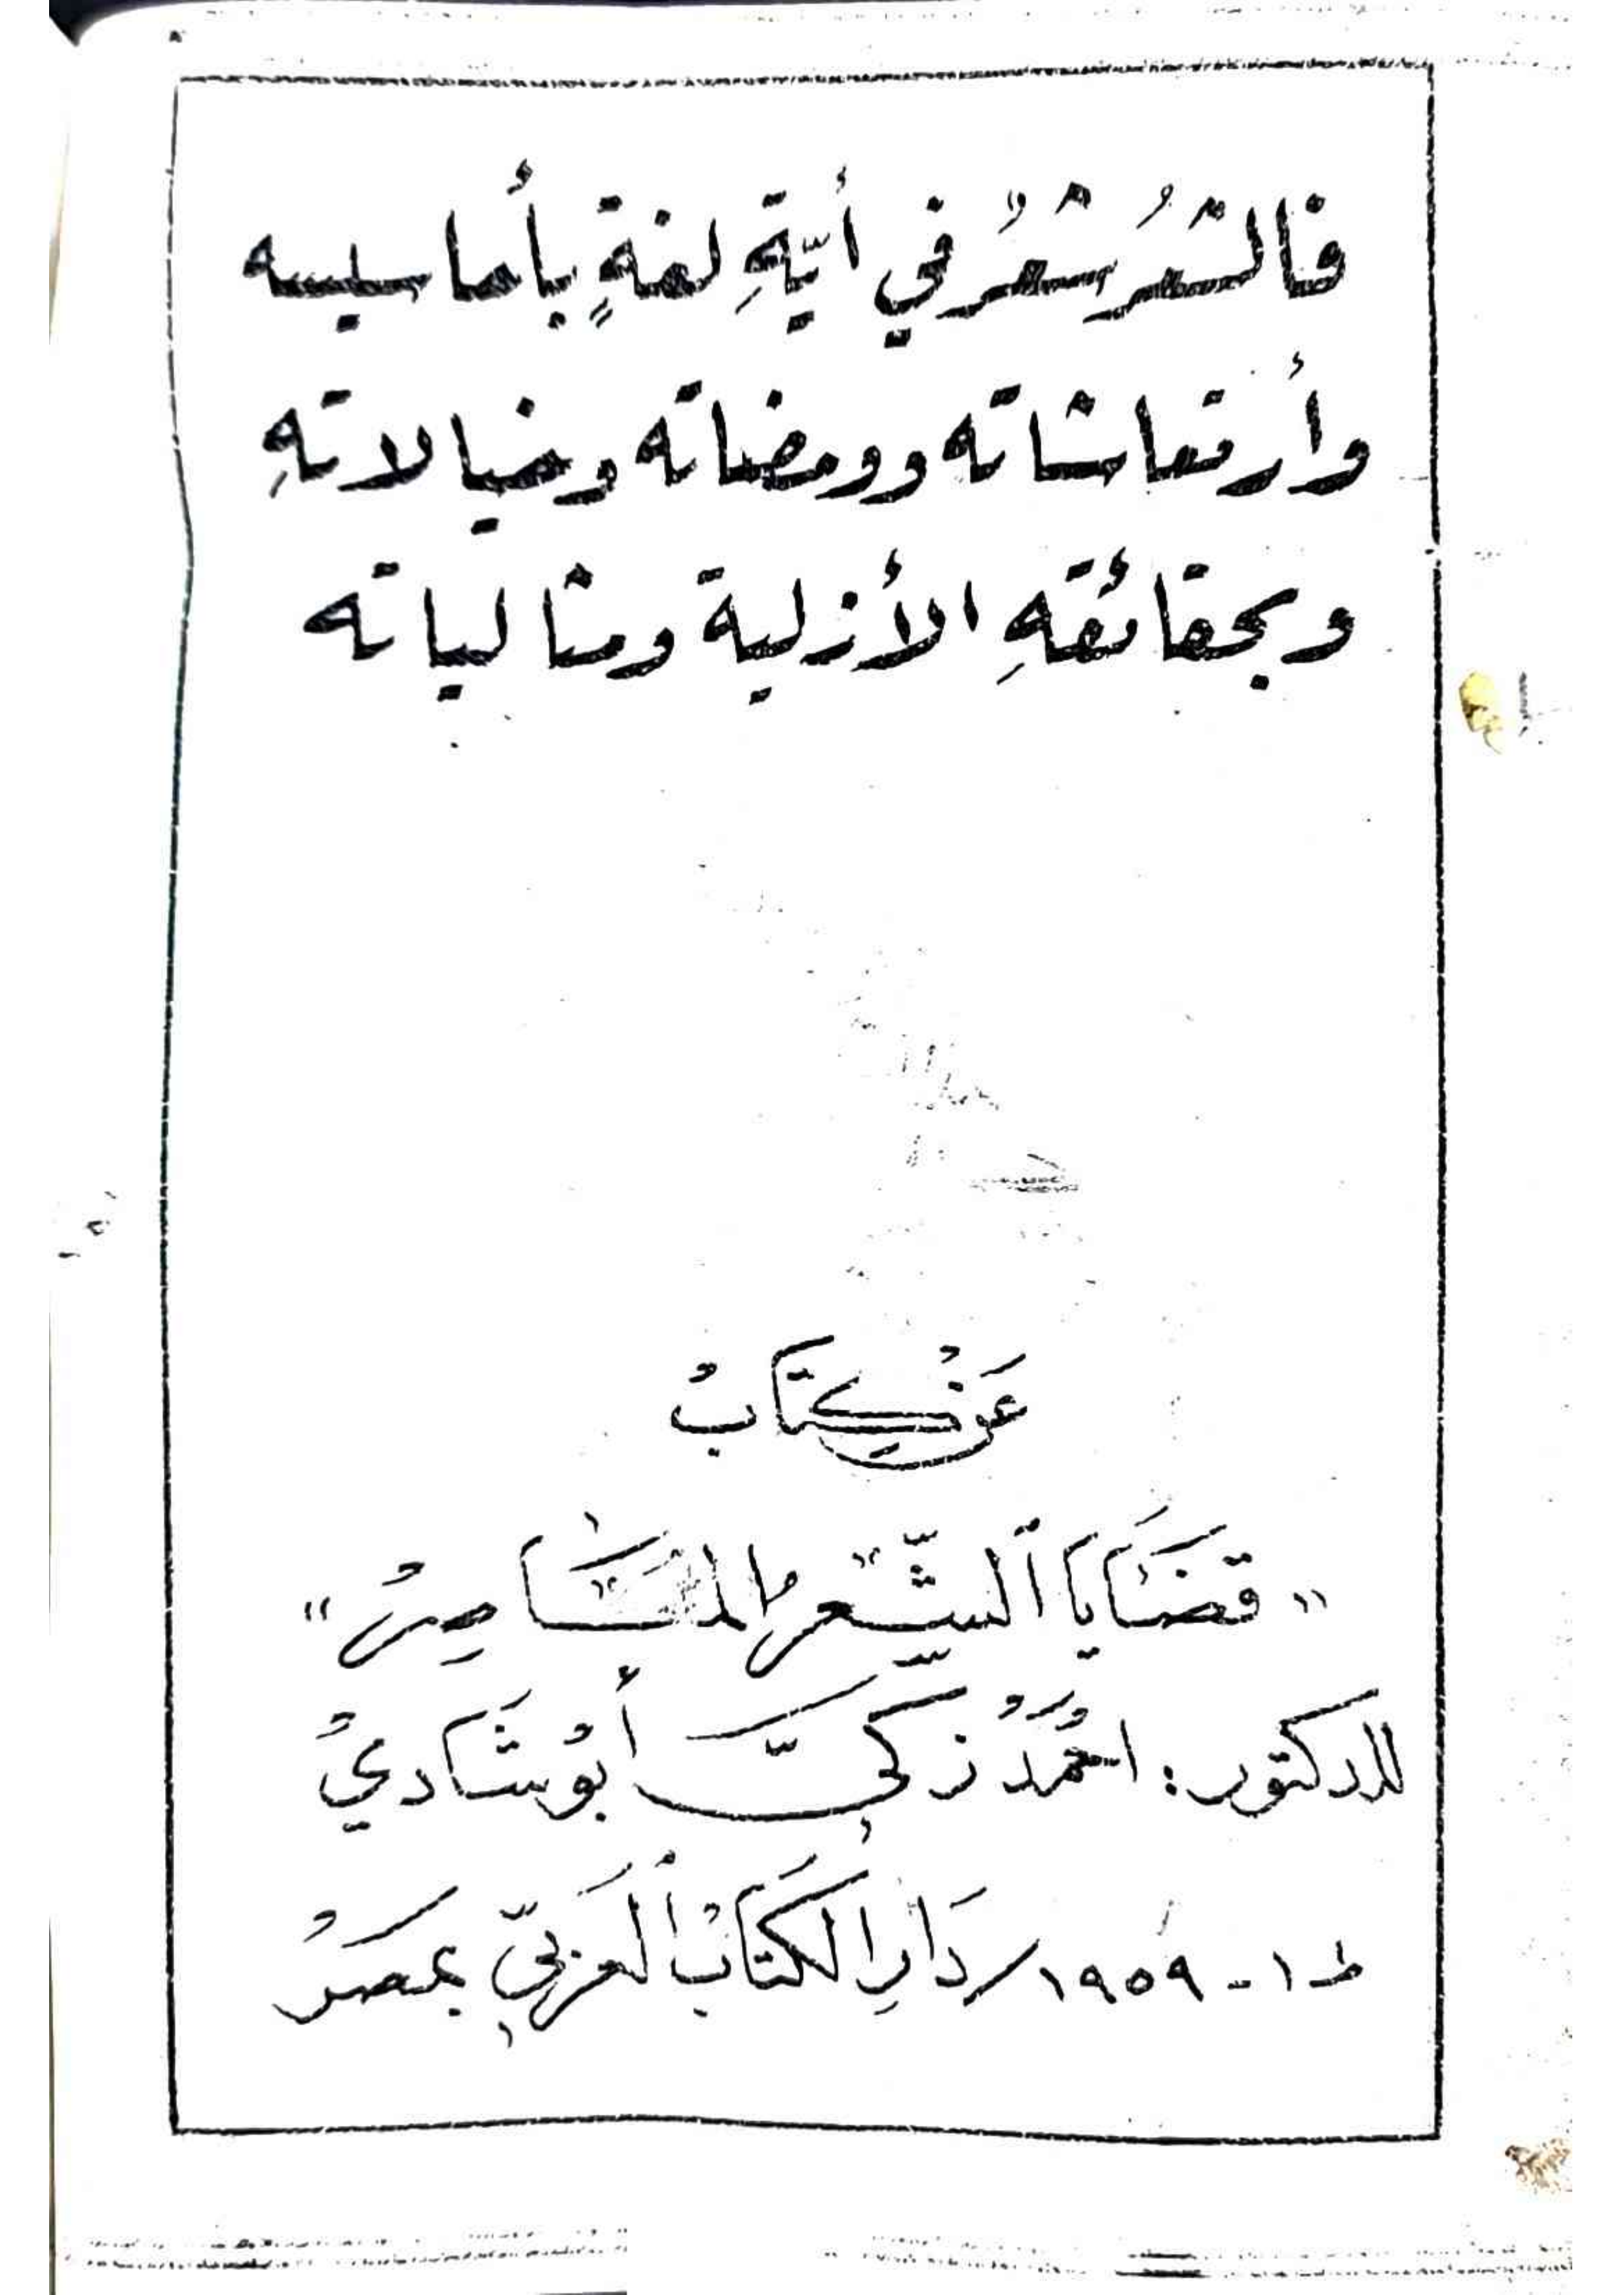 فالشعرُ شعرٌ في أيّةِ لغةٍ بأحاسيسه
وأرتعاشاته وومضاته وخيالاتهِ
وبحقائقهِ الأزلية ومثالياته
عَنْ كِتَابْ
"قضَايَا ٱلشِّعرِ المُعَاصِرْ"
للدكتور: احْمَدْ زكيّ أبُو شَاديْ
ط ١ - ١٩٥٩/ دَارِ الكتَابْ ٱلعَربيّ بمصرْ